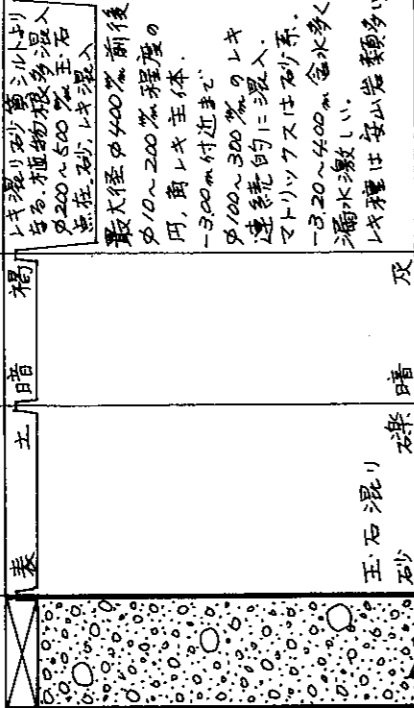 表土
暗褐
レキ混り砂質シルトより
なる.植物根多混入
φ200~500m/m玉石
点在.砂.レキ混入
玉石混り
砂礫
暗灰
最大径φ400m/m前後
φ10~200m/m程度の
円,角レキ主体.
-3.00m付近まで
φ100~300m/mのレキ
連続的に混入.
マトリックスは砂系.
-3.20~4.00m含水多く
漏水激しい.
レキ種は安山岩類多い